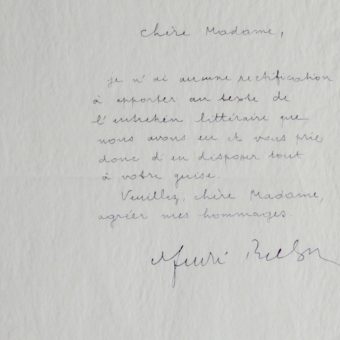 Chère Madame,
je n'ai aucune rectification
à apporter au texte de
l'entretien littéraire que
nous avons eu et vous prie
donc d'en disposer tout
à votre guise.
Veuillez, chère Madame,
agréer mes hommages.
Henri